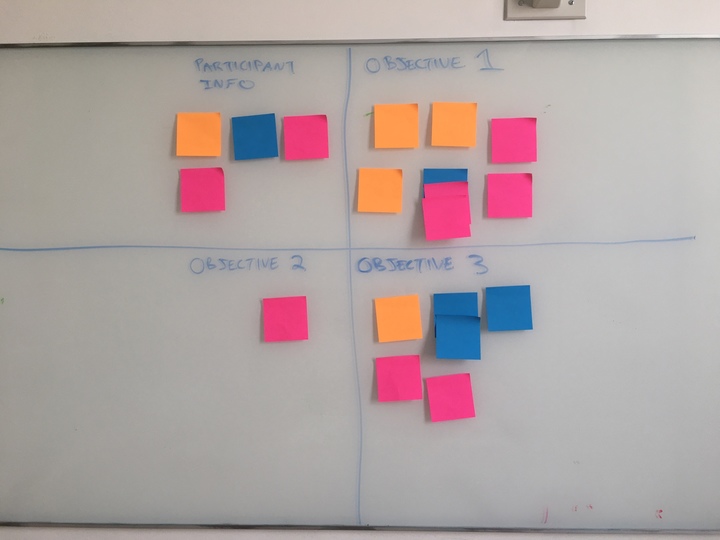 PARTICIPANT
INFO
OBJECTIVE 1
OBJECTIVE 2
OBJECTIVE 3